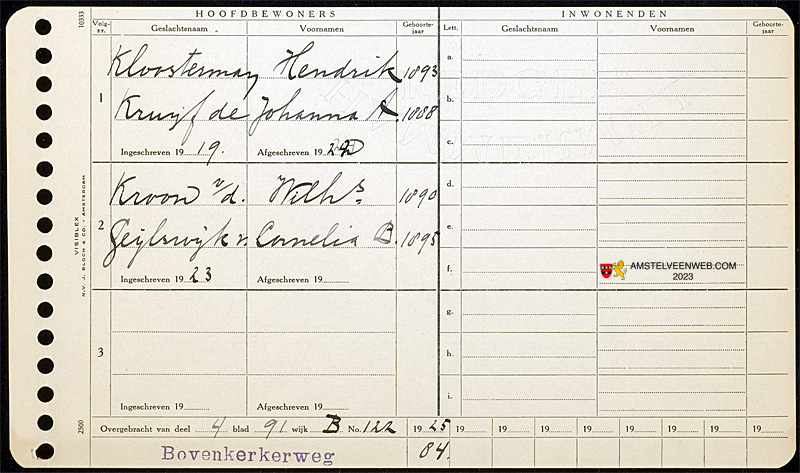 HOOFDBEWONERS INWONENDEN
Volg-nr. Geslachtsnaam Voornamen Geboorte-jaar Lett. Geslachtsnaam Voornamen Geboorte-jaar
1 Kloosterman Hendrik 1893 a.
Kruijf de Johanna A. 1888 b.
c.
Ingeschreven 19 19. Afgeschreven 19
2 Kroon v/d. Wilhs. 1890 d.
Geijlswijk v. Cornelia B. 1895 e.
Ingeschreven 19 23 Afgeschreven 19 f.
AMSTELVEENWEB.COM
2023
3 g.
h.
i.
Ingeschreven 19 Afgeschreven 19
Overgebracht van deel 4 blad 91 wijk B No. 122 19 25 19 19 19 19 19 19 19 19
Bovenkerkerweg 84.
10333
VISIBLEX
N.V. J. BLOCH & CO. - AMSTERDAM
2500